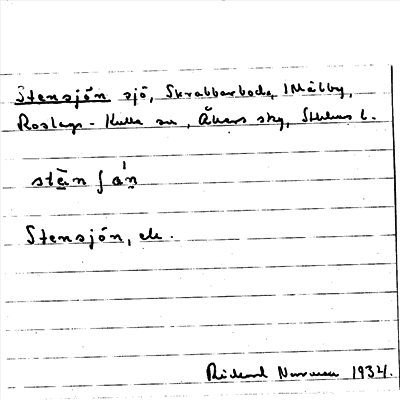 Stensjön sjö, Skrabbarboda, i Målby,
Roslags-Kulla sn, Åkers skg, Sthlms l.
stän ʃ ón
Stensjön, ek.
Rickard Norman 1934.